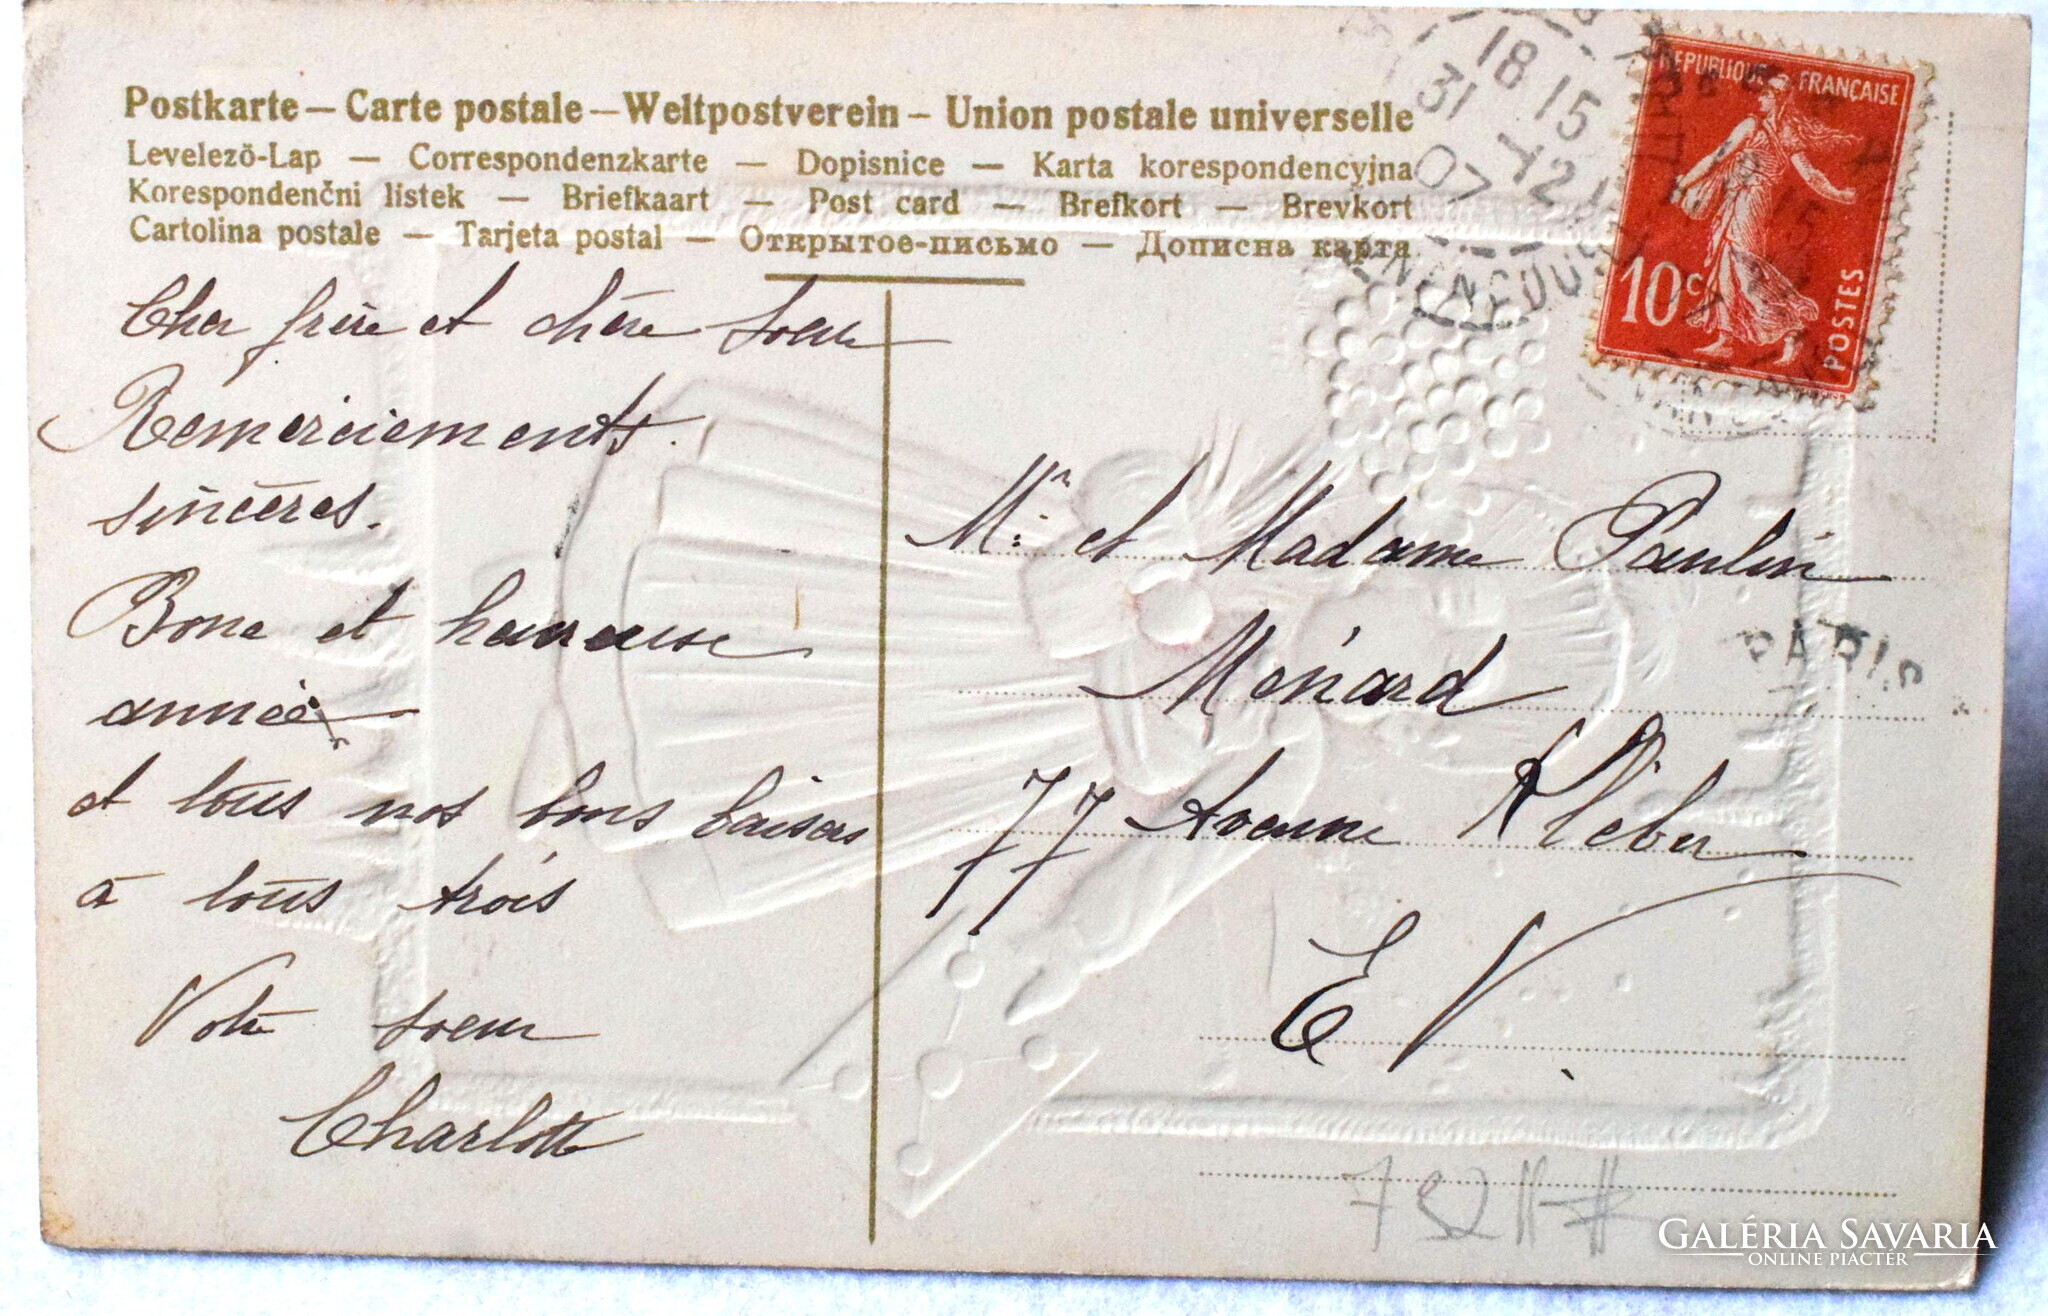 Postkarte – Carte postale – Weltpostverein – Union postale universelle
Levelezö-Lap — Correspondenzkarte — Dopisnice — Karta korespondencyjna
Korespondenčni listek — Briefkaart — Post card — Brefkort — Brevkort
Cartolina postale — Tarjeta postal — Открытое-письмо — Дописна карта
18 15
31 12
07
REPUBLIQUE FRANÇAISE
10c
POSTES
Cher frère et chère soeur
Remerciements
sincères.
Bone et heureuse
année
et tous nos bons baisers
à tous trois
Votre soeur
Charlotte
Mr et Madame Paulin
Ménard
PARIS
77 Avenue Kléber
E V.
GALÉRIA SAVARIA
ONLINE PIACTÉR